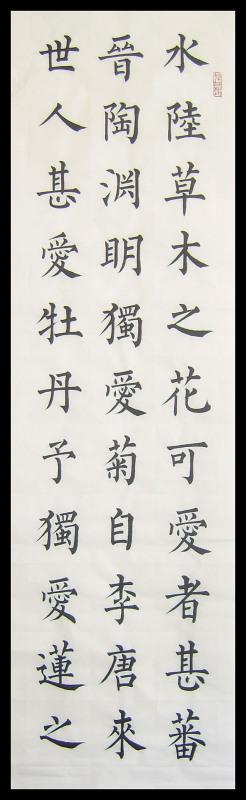 水陸草木之花可愛者甚蕃
晉陶渊明獨愛菊自李唐來
世人甚愛牡丹予獨愛蓮之